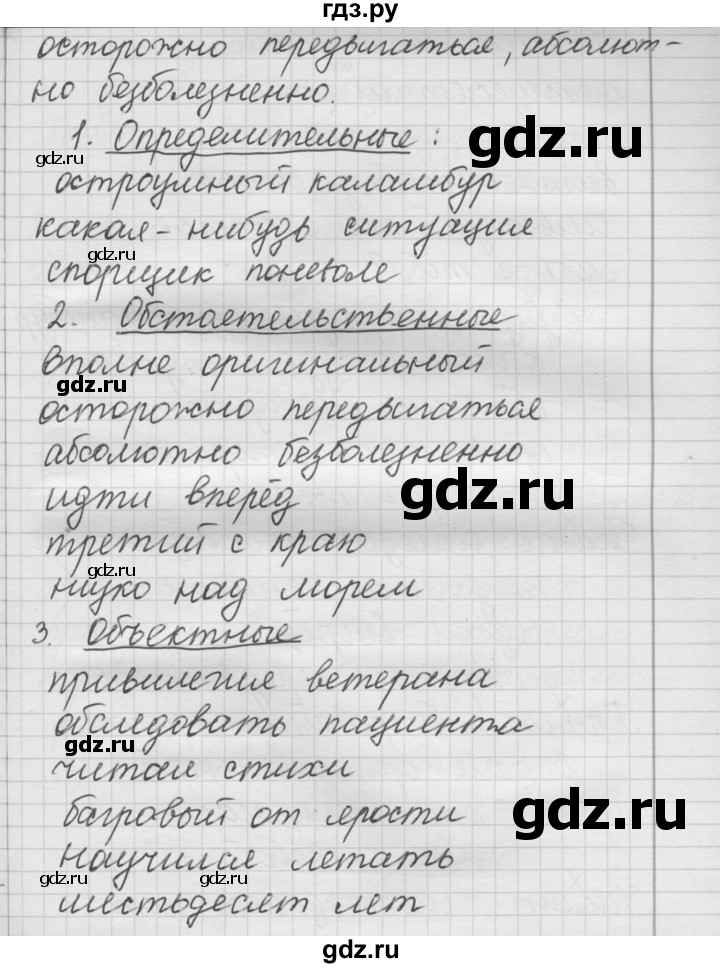 гдз.ру
осторожно передвигаться, абсолют-
но безболезненно.
1. Определительные:
gdz.ru
gdz.ru
остроумный каламбур
какая-нибудь ситуация
gdz.ru
спорщик поневоле
2. Обстоятельственные
вполне оригинальный
gdz.ru
осторожно передвигаться
абсолютно безболезненно
идти вперёд
gdz.ru
третий с краю
gdz.ru
низко над морем
3. Объектные
привилегия ветерана
обследовать пациента
gdz.ru
читая стихи
багровый от ярости
gdz.ru
научился летать
gdz.ru
gdz.ru
шестьдесят лет
gdz.ru